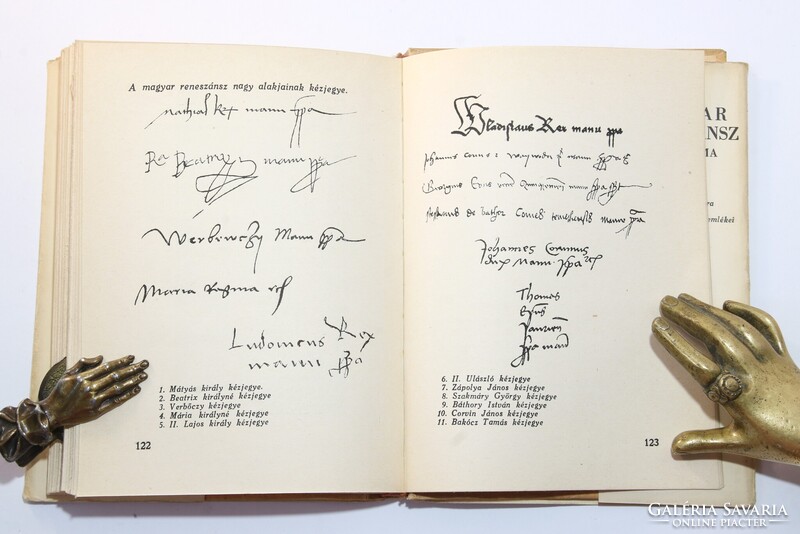 A magyar reneszánsz nagy alakjainak kézjegye.
Mathias Rex manu ppa
Ra Beatrix manu ppa
Werbewczy Manu ppa
Maria Regina
Ludovicus Rex
manu ppa
1. Mátyás király kézjegye.
2. Beatrix királyné kézjegye
3. Verbőczy kézjegye
4. Mária királyné kézjegye
5. II. Lajos király kézjegye
122
Wladislaus Rex manu ppa
manu
Georgius manu
Stephanus de bathor Comes manu ppa
Johannes Corvinus
dux Manu ppa
Thomas
manu
6. II. Ulászló kézjegye
7. Zápolya János kézjegye
8. Szakmáry György kézjegye
9. Báthory István kézjegye
10. Corvin János kézjegye
11. Bakócz Tamás kézjegye
123
AR
NSZ
MA
ra
emlékei
GALÉRIA SAVARIA
ONLINE PIACTÉR